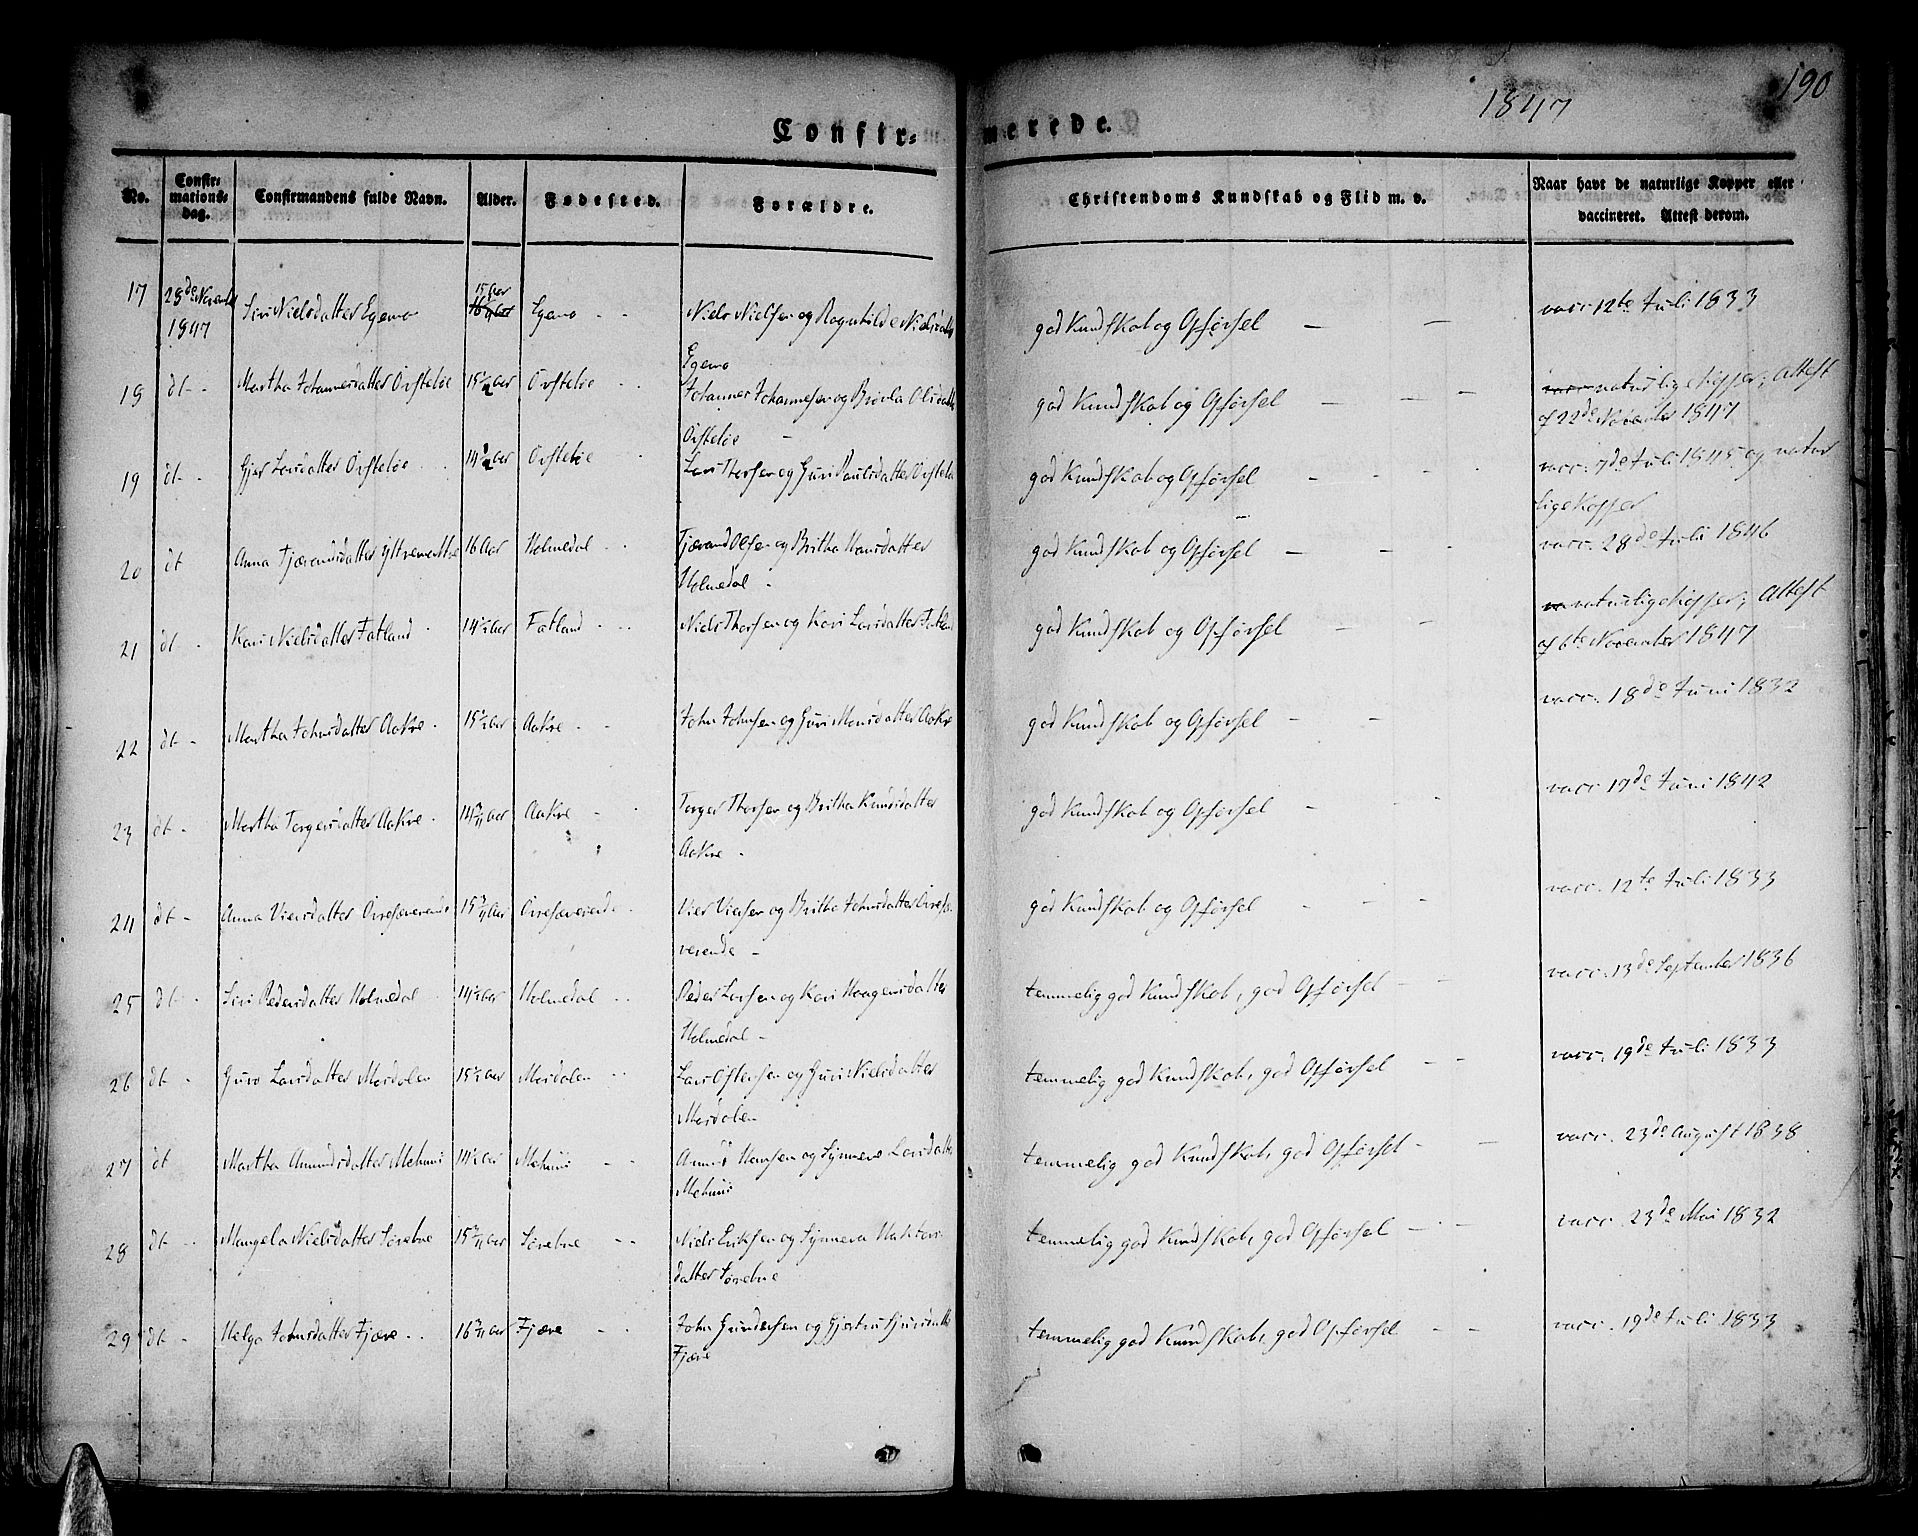 190
1847
Confir= merede.
No. Confir= mations= dag. Confirmandens fulde Navn. Alder. Fødested. Forældre. Christendoms Kundskab og Flid m. v. Naar havt de naturlige Kopper eller vaccineret. Attest derom.
17 28de November 1847 Siri Nielsdatter Egemo 15 Aar Egemo - - Niels Nielsen og Ragnhilde Nielsdatter god Kundskab og Opførsel — — vacc 12te Juli 1833
Egemo
18 dt - Martha Johannesdatter Ørsteløe 15½ Aar Ørsteløe - - Johannes Johannesen og Brøla Olsdatter god Kundskab og Opførsel — — — naturlige Kopper, Attest
Ørsteløe — af 22de November 1847
19 dt - Gjer Larsdatter Ørsteløe - 14½ Aar Ørsteløe - Lars Thorsen og Guri Paulsdatter Ørsteløe god Kundskab og Opførsel - - - vacc. 7de Juli 1845 og natur
lige Kopper
20 dt Anna Tjærandsdatter 16 Aar Holmedal - - Tjærand Olsen og Britha Hansdatter god Kundskab og Opførsel — — - vacc. 28de Juli 1846
Holmedal -
21 dt - Kari Nielsdatter Fatland - 14½ Aar Fatland - - Niels Thorsen og Kari Larsdatter Fatland god Kundskab og Opførsel — — naturlige Kopper, Attest
af 6te November 1847
22 dt - Martha Johnsdatter Aakre - 15½ Aar Aakre - - John Johnsen og Guri Monsdatter Aakre god Kundskab og Opførsel — — vacc. 18de Juni 1832
23 dt - Martha Torgersdatter Aakre - 14 Aar Aakre - Torger Thorsen og Britha Knudsdatter god Kundskab og Opførsel - - - vacc 17de Juni 1842
Aakre -
24 dt - Anna Viersdatter 15 Aar Vier Viersen og Britha Johnsdatter god Kundskab og Opførsel - - - vacc. 12te Juli 1833
verende -
25 dt - Siri Pedersdatter Holmedal 14½ Aar Holmedal - - Peder Larsen og Kari Haagensdatter temmelig god Kundskab, god Opførsel - - vacc. 13de September 1836
Holmedal -
26 dt - Guro Larsdatter Mosdalen 15½ Aar Mosdalen - - Lars Ostersen og Guri Nielsdatter temmelig god Kundskab, god Opførsel - - vacc. 19de Juli 1833
Mosdalen
27 dt Martha Amundsdatter Mehuus 14½ Aar Mehuus - - Amund Hansen og Synneve Larsdatter temmelig god Kundskab, god Opførsel - — vacc. 23de August 1838
Mehuus
28 dt - Mangela Nielsdatter Sørebue 15 Aar Sørebue - - Niels Eriksen og Synneva temmelig god Kundskab, god Opførsel - - vacc. 23de Mai 1832
datter Sørebue
29 dt - Helga Johnsdatter Fjære - - 16 Aar Fjære - - John Gundersen og Gjertru temmelig god Kundskab, god Opførsel - - vacc. 19de Juli 1833
Fjære